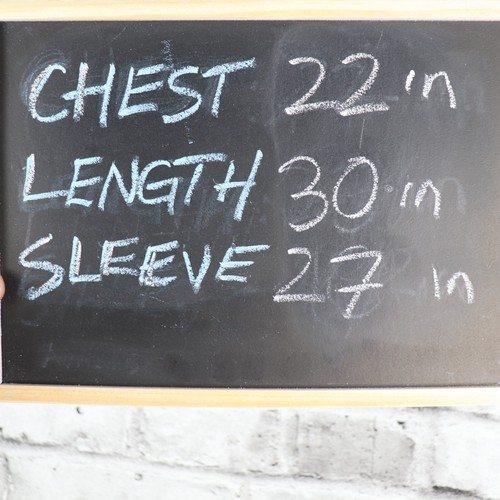 CHEST 22 in
LENGTH 30 in
SLEEVE 27 in